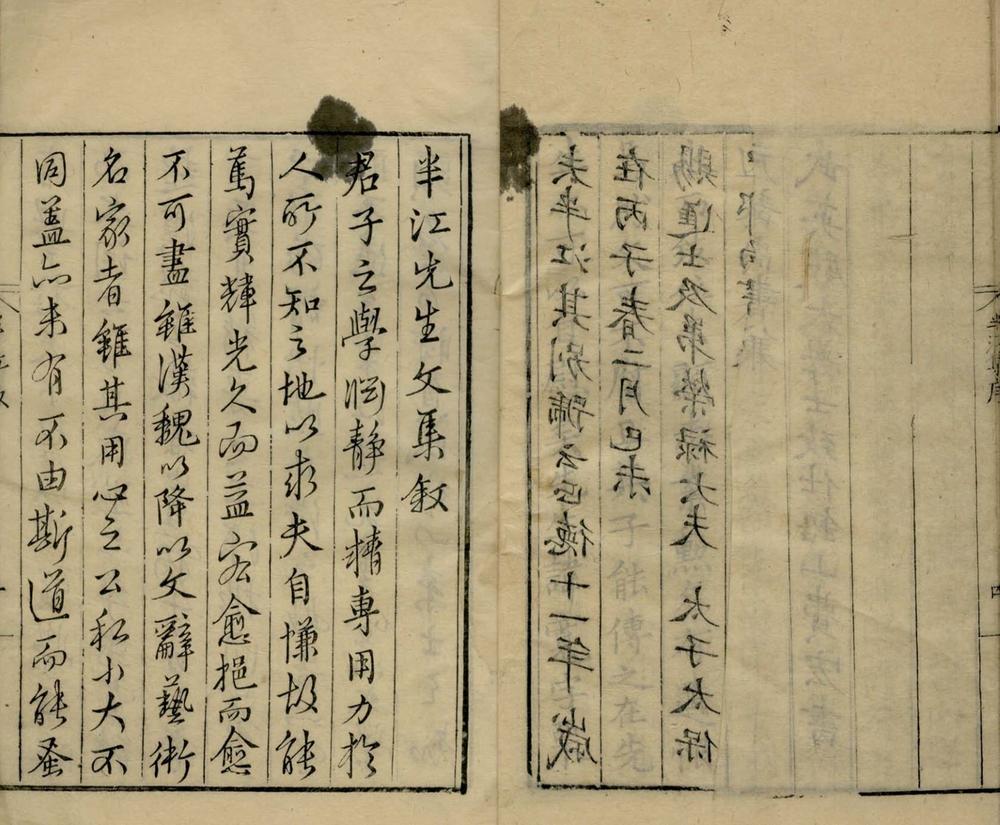 半江其別號云正德十一年歲
在丙子春二月己未
賜進士及第榮祿大夫 太子太保
武英殿大學士致仕鉛山費宏書
半江先生文集敘
君子之學淵靜而精專用力於
人所不知之地以求夫自慊故能
篤實輝光久而益宏愈挹而愈
不可盡雖漢魏以降以文辭藝術
名家者雖其用心之公私小大不
同蓋亦未有不由斯道而能蚤